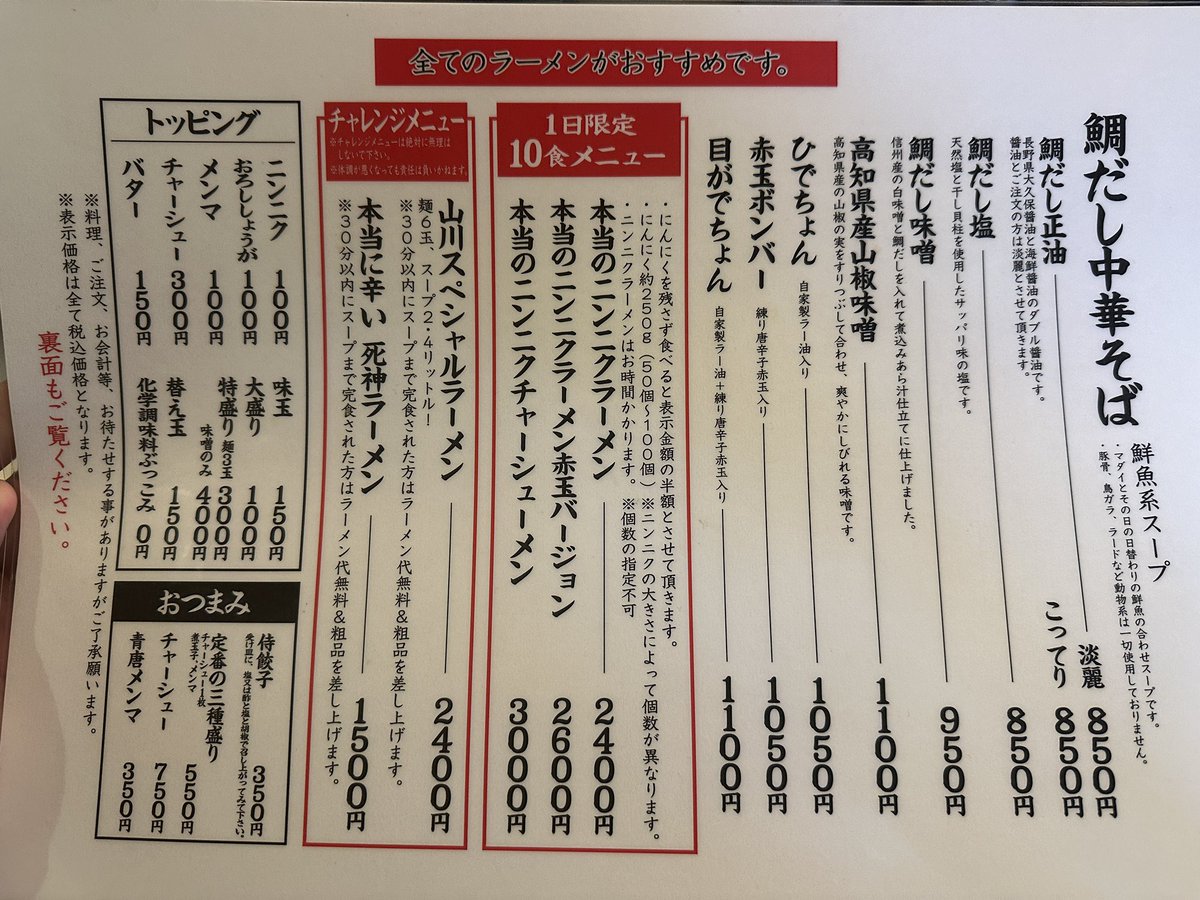 全てのラーメンがおすすめです。
鯛だし中華そば
鮮魚系スープ
・マダイとその日の日替わりの鮮魚の合わせスープです。
・豚骨、鳥ガラ、ラードなど動物系は一切使用しておりません。
鯛だし正油
淡麗 850円
こってり 850円
長野県大久保醤油と海鮮醤油のダブル醤油です。
醤油とご注文の方は淡麗とさせて頂きます。
鯛だし塩 850円
天然塩と干し貝柱を使用したサッパリ味の塩です。
鯛だし味噌 950円
信州産の白味噌と鯛だしを入れて煮込みあら汁仕立てに仕上げました。
高知県産山椒味噌 1100円
高知県産の山椒の実をすりつぶして合わせ、爽やかにしびれる味噌です。
ひでちょん 自家製ラー油入り 1050円
赤玉ボンバー 練り唐辛子赤玉入り 1050円
目がでちょん 自家製ラー油+練り唐辛子赤玉入り 1100円
1日限定
10食メニュー
・にんにくを残さず食べると表示金額の半額とさせて頂きます。
・にんにく約250g(50個〜100個)※ニンニクの大きさによって個数が異なります。
・ニンニクラーメンはお時間かかります。※個数の指定不可
本当のニンニクラーメン 2400円
本当のニンニクラーメン赤玉バージョン 2600円
本当のニンニクチャーシューメン 3000円
チャレンジメニュー
※チャレンジメニューは絶対に無理は
しないで下さい。
※体調が悪くなっても責任は負いかねます。
山川スペシャルラーメン 2400円
麺6玉、スープ2・4リットル!
※30分以内にスープまで完食された方はラーメン代無料&粗品を差し上げます。
本当に辛い 死神ラーメン 1500円
※30分以内にスープまで完食された方はラーメン代無料&粗品を差し上げます。
トッピング
ニンニク 100円
おろししょうが 100円
メンマ 100円
チャーシュー 300円
バター 150円
味玉 150円
大盛り 100円
特盛り 麺3玉 300円
味噌のみ 400円
替え玉 150円
化学調味料ぶっこみ 0円
おつまみ
侍餃子 350円
受け皿に、塩又は酢と塩と胡椒で召し上がってみて下さい。
定番の三種盛り 550円
チャーシュー1枚
煮玉子、メンマ
チャーシュー 750円
青唐メンマ 350円
※料理、ご注文、お会計等、お待たせする事がありますがご了承願います。
※表示価格は全て税込価格となります。
裏面もご覧ください。